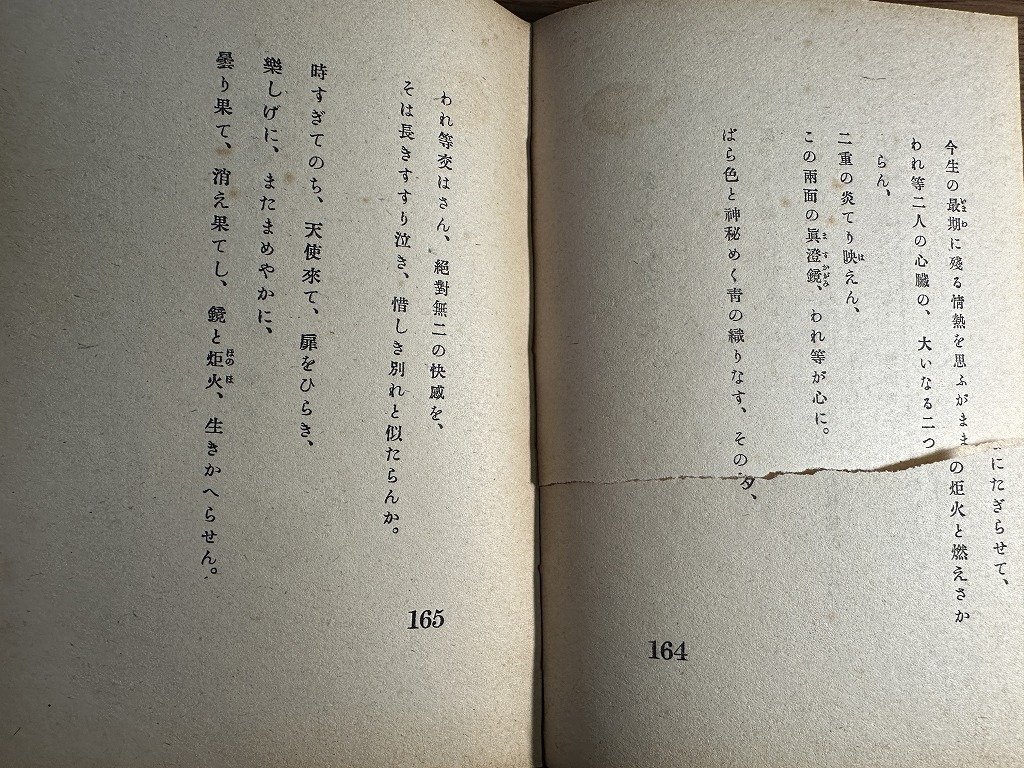 いまわ
今生の最期に殘る情熱を思ふがままにたぎらせて、
われ等二人の心臟の、大いなる二つの炬火と燃えさか
らん、
は
二重の炎てり映えん、
ますかがみ
この兩面の眞澄鏡、われ等が心に。
ばら色と神秘めく靑の織りなす、その夕、
164
われ等交はさん、絕對無二の快感を、
そは長きすすり泣き、惜しき別れと似たらんか。
時すぎてのち、天使來て、扉をひらき、
樂しげに、またまめやかに、
ほのほ
曇り果て、消え果てし、鏡と炬火、生きかへらせん。
165